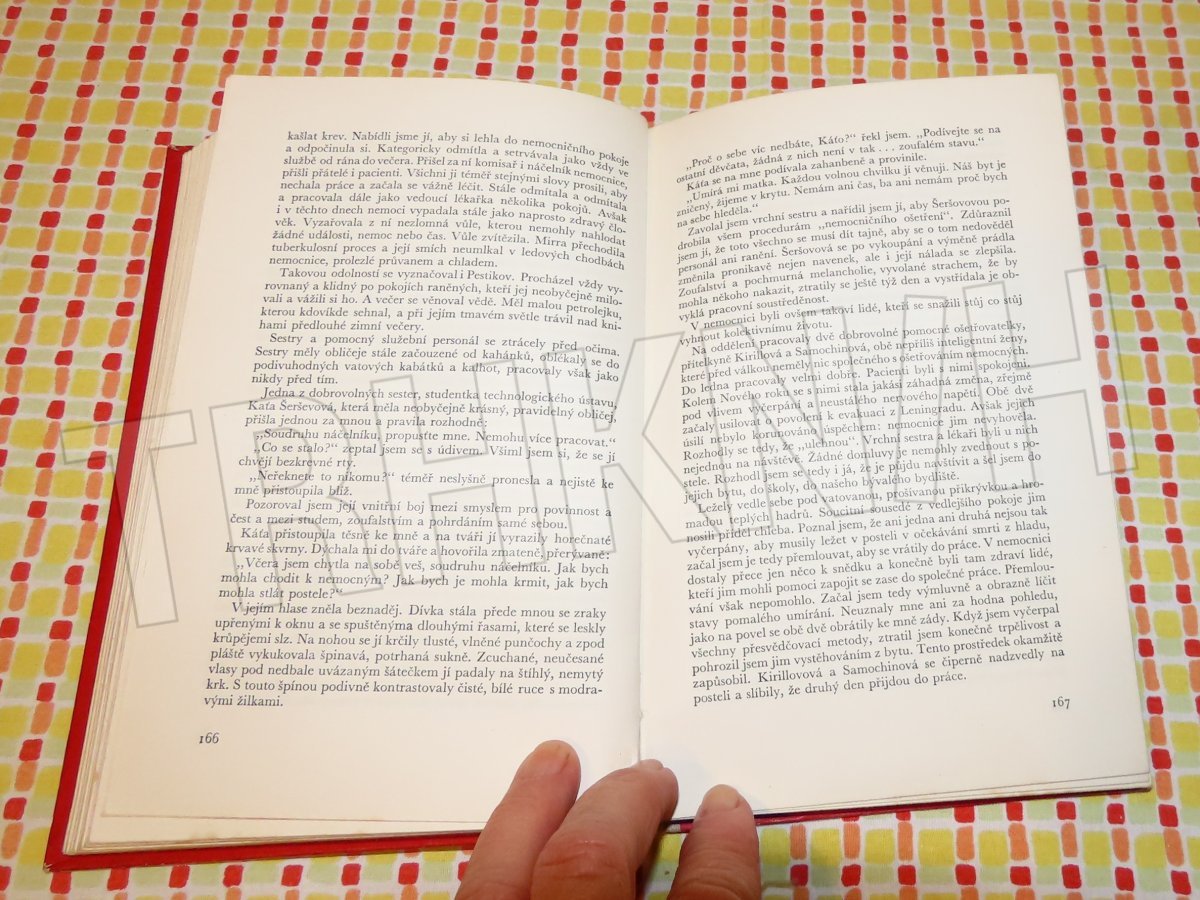 kašlat krev. Nabídli jsme jí, aby si lehla do nemocničního pokoje
a odpočinula si. Kategoricky odmítla a setrvávala jako vždy ve
službě od rána do večera. Přišel za ní komisař i náčelník nemocnice,
přišli přátelé i pacienti. Všichni ji téměř stejnými slovy prosili, aby
nechala práce a začala se vážně léčit. Stále odmítala a odmítala
a pracovala dále jako vedoucí lékařka několika pokojů. Avšak
i v těchto dnech nemoci vypadala stále jako naprosto zdravý člo-
věk. Vyzařovala z ní nezlomná vůle, kterou nemohly nahlodat
žádné události, nemoc nebo čas. Vůle zvítězila. Mirra přechodila
tuberkulosní proces a její smích neumlkal v ledových chodbách
nemocnice, prolezlé průvanem a chladem.
Takovou odolností se vyznačoval i Pestikov. Procházel vždy vy-
rovnaný a klidný po pokojích raněných, kteří jej neobyčejně milo-
vali a vážili si ho. A večer se věnoval vědě. Měl malou petrolejku,
kterou kdovíkde sehnal, a při jejím tmavém světle trávil nad kni-
hami předlouhé zimní večery.
Sestry a pomocný služební personál se ztrácely před očima.
Sestry měly obličeje stále začouzené od kahánků, oblékaly se do
podivuhodných vatových kabátků a kalhot, pracovaly však jako
nikdy před tím.
Jedna z dobrovolných sester, studentka technologického ústavu,
Kaťa Šerševová, která měla neobyčejně krásný, pravidelný obličej,
přišla jednou za mnou a pravila rozhodně:
„Soudruhu náčelníku, propusťte mne. Nemohu více pracovat.“
„Co se stalo?“ zeptal jsem se s údivem. Všiml jsem si, že se jí
chvějí bezkrevné rty.
„Neřeknete to nikomu?“ téměř neslyšně pronesla a nejistě ke
mně přistoupila blíž.
Pozoroval jsem její vnitřní boj mezi smyslem pro povinnost a
čest a mezi studem, zoufalstvím a pohrdáním samé sebou.
Káťa přistoupila těsně ke mně a na tváři jí vyrazily horečnaté
krvavé skvrny. Dýchala mi do tváře a hovořila zmateně, přerývaně:
„Včera jsem chytla na sobě veš, soudruhu náčelníku. Jak bych
mohla chodit k nemocným? Jak bych je mohla krmit, jak bych
mohla stlát postele?“
V jejím hlase zněla beznaděj. Dívka stála přede mnou se zraky
upřenými k oknu a se spuštěnýma dlouhými řasami, které se leskly
krůpějemi slz. Na nohou se jí krčily tlusté, vlněné punčochy a zpod
pláště vykukovala špinavá, potrhaná sukně. Zcuchané, neučesané
vlasy pod nedbale uvázaným šátečkem jí padaly na štíhlý, nemytý
krk. S touto špínou podivně kontrastovaly čisté, bílé ruce s modra-
vými žilkami.
166
„Proč o sebe víc nedbáte, Káťo?“ řekl jsem. „Podívejte se na
ostatní děvčata, žádná z nich není v tak . . . zoufalém stavu.“
Káťa se na mne podívala zahanbeně a provinile.
„Umírá mi matka. Každou volnou chvilku jí věnuji. Náš byt je
zničený, žijeme v krytu. Nemám ani čas, ba ani nemám proč bych
na sebe hleděla.“
Zavolal jsem vrchní sestru a nařídil jsem jí, aby Šeršovovou po-
drobila všem procedurám „nemocničního ošetření“. Zdůraznil
jsem jí, že toto všechno se musí dít tajně, aby se o tom nedověděl
personál ani ranění. Šeršovová se po vykoupání a výměně prádla
změnila pronikavě nejen navenek, ale i její nálada se zlepšila.
Zoufalství a pochmurná melancholie, vyvolané strachem, že by
mohla někoho nakazit, ztratily se ještě týž den a vystřídala je ob-
vyklá pracovní soustředěnost.
V nemocnici byli ovšem takoví lidé, kteří se snažili stůj co stůj
vyhnout kolektivnímu životu.
Na oddělení pracovaly dvě dobrovolné pomocné ošetřovatelky,
přítelkyně Kirillová a Samochinová, obě nepříliš inteligentní ženy,
které před válkou neměly nic společného s ošetřováním nemocných.
Do ledna pracovaly velmi dobře. Pacienti byli s nimi spokojeni.
Kolem Nového roku se s nimi stala jakási záhadná změna, zřejmě
pod vlivem vyčerpání a neustálého nervového napětí. Obě dvě
začaly usilovat o povolení k evakuaci z Leningradu. Avšak jejich
úsilí nebylo korunováno úspěchem: nemocnice jim nevyhověla.
Rozhodly se tedy, že „ulehnou“. Vrchní sestra a lékaři byli u nich
nejednou na návštěvě. Žádné domluvy je nemohly zvednout s po-
stele. Rozhodl jsem se tedy i já, že je půjdu navštívit a šel jsem do
jejich bytu, do školy, do našeho bývalého bydliště.
Ležely vedle sebe pod vatovanou, prošívanou přikrývkou a hro-
madou teplých hadrů. Soucitní sousedé z vedlejšího pokoje jim
nosili příděl chleba. Poznal jsem, že ani jedna ani druhá nejsou tak
vyčerpány, aby musily ležet v posteli v očekávání smrti z hladu,
začal jsem je tedy přemlouvat, aby se vrátily do práce. V nemocnici
dostaly přece jen něco k snědku a konečně byli tam zdraví lidé,
kteří jim mohli pomoci zapojit se zase do společné práce. Přemlou-
vání však nepomohlo. Začal jsem tedy výmluvně a obrazně líčit
stavy pomalého umírání. Neuznaly mne ani za hodna pohledu,
jako na povel se obě dvě obrátily ke mně zády. Když jsem vyčerpal
všechny přesvědčovací metody, ztratil jsem konečně trpělivost a
pohrozil jsem jim vystěhováním z bytu. Tento prostředek okamžitě
zapůsobil. Kirillovová a Samochinová se čiperně nadzvedly na
posteli a slíbily, že druhý den přijdou do práce.
167
TRHKNIH